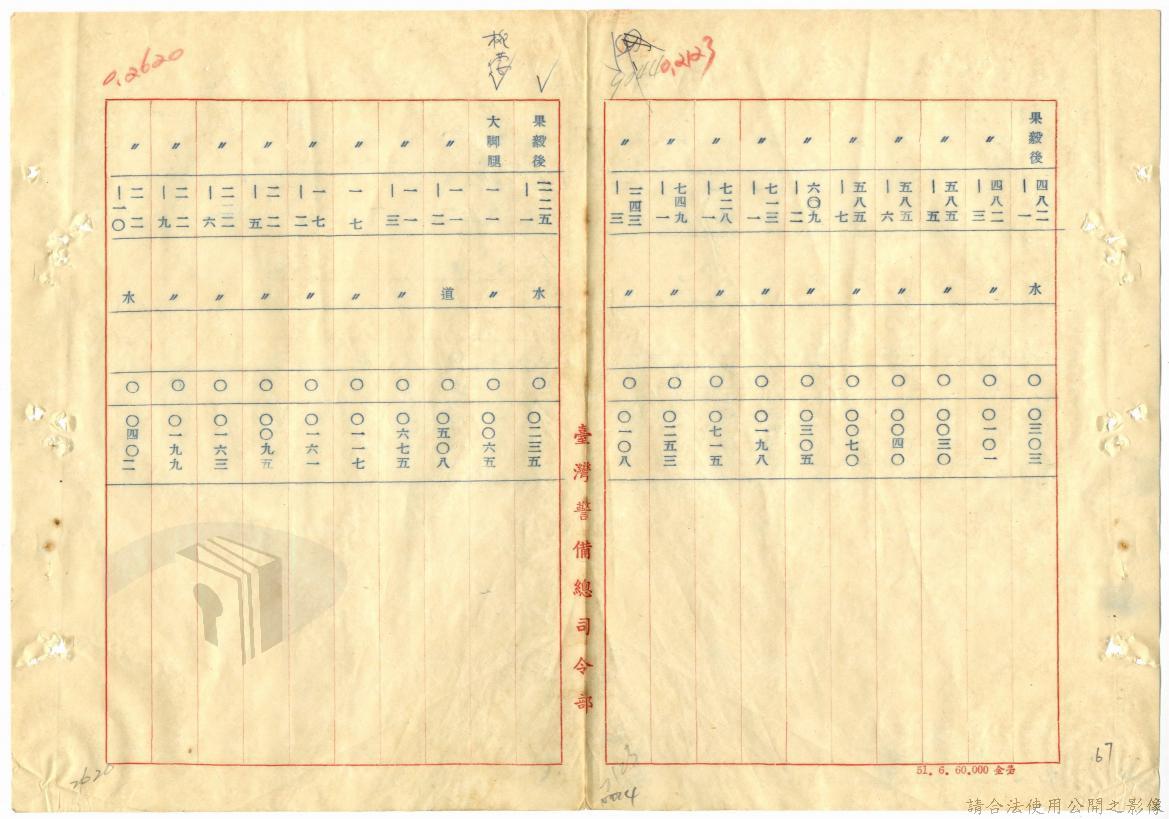 0.2123
果毅後 四八二—一 水 〇 〇三〇三
〃 四八二—三 〃 〇 〇一〇一
〃 五八五—五 〃 〇 〇〇三〇
〃 五八五—六 〃 〇 〇〇四〇
〃 五八五—七 〃 〇 〇〇七〇
〃 六〇九—二 〃 〇 〇三〇五
〃 七一三—一 〃 〇 〇一九八
〃 七二八—一 〃 〇 〇七一五
〃 七四九—一 〃 〇 〇二五三
〃 一二四三—三 〃 〇 〇一〇八
51. 6. 60.000
67
臺灣警備總司令部
0.2620
果毅後 一二二五—一 水 〇 〇二三五
大脚腿 一一 〃 〇 〇〇六五
〃 一一—二 道 〇 〇五〇八
〃 一一—三 〃 〇 〇六七五
〃 一七 〃 〇 〇一一七
〃 一七—二 〃 〇 〇一六一
〃 二二—五 〃 〇 〇〇九五
〃 二二—六 〃 〇 〇一六三
〃 二二—九 〃 〇 〇一九九
〃 二二—一〇 水 〇 〇四〇二
2620
請合法使用公開之影像